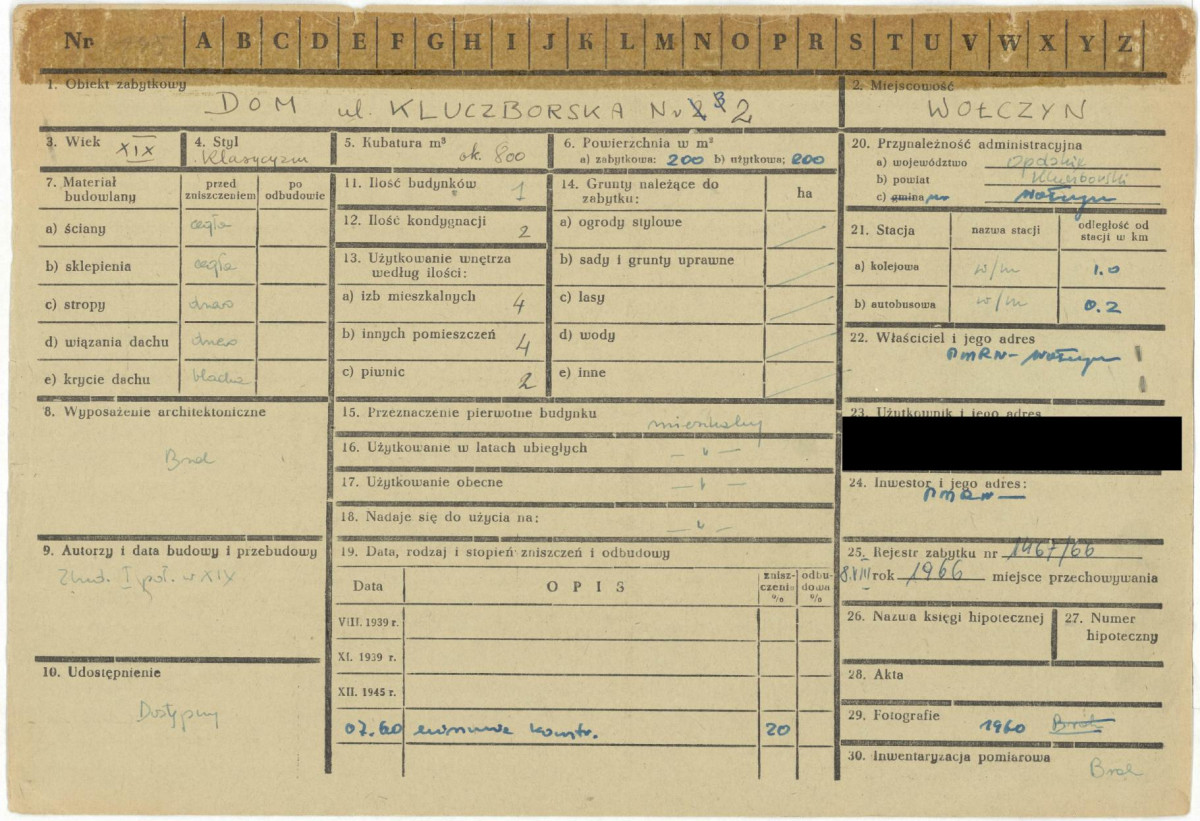 Nr A B C D E F G H I J K L M N O P R S T U V W X Y Z
1. Obiekt zabytkowy
DOM ul. KLUCZBORSKA Nr 2
2. Miejscowość
WOŁCZYN
3. Wiek XIX
4. Styl
Klasycyzm
5. Kubatura m³
ok. 800
6. Powierzchnia w m²
a) zabytkowa: 200 b) użytkowa: 200
7. Materiał budowlany
przed zniszczeniem
po odbudowie
a) ściany cegła
b) sklepienia cegła
c) stropy drewn
d) wiązania dachu drewn
e) krycie dachu blacha
8. Wyposażenie architektoniczne
Brak
9. Autorzy i data budowy i przebudowy
Zbud. I poł. w XIX
10. Udostępnienie
Dostępny
11. Ilość budynków 1
12. Ilość kondygnacji 2
13. Użytkowanie wnętrza
według ilości:
a) izb mieszkalnych 4
b) innych pomieszczeń 4
c) piwnic 2
14. Grunty należące do
zabytku:
ha
a) ogrody stylowe
b) sady i grunty uprawne
c) lasy
d) wody
e) inne
15. Przeznaczenie pierwotne budynku
mieszkalny
16. Użytkowanie w latach ubiegłych
— " —
17. Użytkowanie obecne
— " —
18. Nadaje się do użycia na:
— " —
19. Data, rodzaj i stopień zniszczeń i odbudowy
Data OPIS zniszczenia % odbudowa %
VIII. 1939 r.
XI. 1939 r.
XII. 1945 r.
07.60 konstr. 20
20. Przynależność administracyjna
a) województwo Opolskie
b) powiat Kluczborski
c) gmina Wołczyn
21. Stacja
nazwa stacji
odległość od
stacji w km
a) kolejowa w/m 1.0
b) autobusowa w/m 0.2
22. Właściciel i jego adres
PMRN – Wołczyn
23. Użytkownik i jego adres
24. Inwestor i jego adres:
PMRN —
25. Rejestr zabytku nr 1467/66
8.VIII rok 1966 miejsce przechowywania
26. Nazwa księgi hipotecznej
27. Numer
hipoteczny
28. Akta
29. Fotografie 1960 Brak
30. Inwentaryzacja pomiarowa
Brak